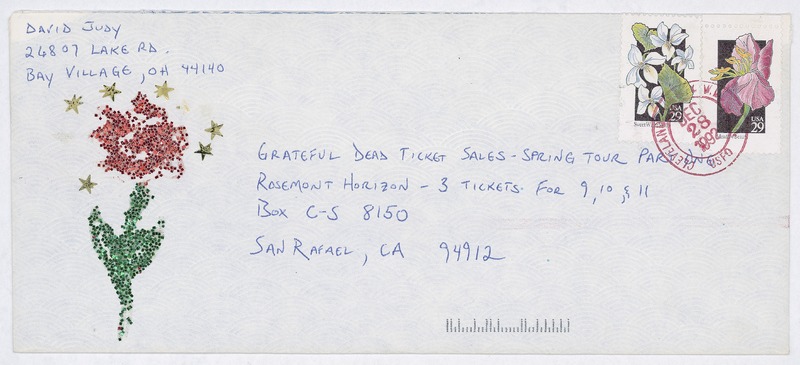 DAVID JUDY
24807 LAKE RD.
BAY VILLAGE, OH 44140
USA
29
USA
29
DEC
28
1992
GRATEFUL DEAD TICKET SALES - SPRING TOUR
ROSEMONT HORIZON - 3 TICKETS FOR 9, 10, & 11
BOX C-S 8150
SAN RAFAEL, CA 94912